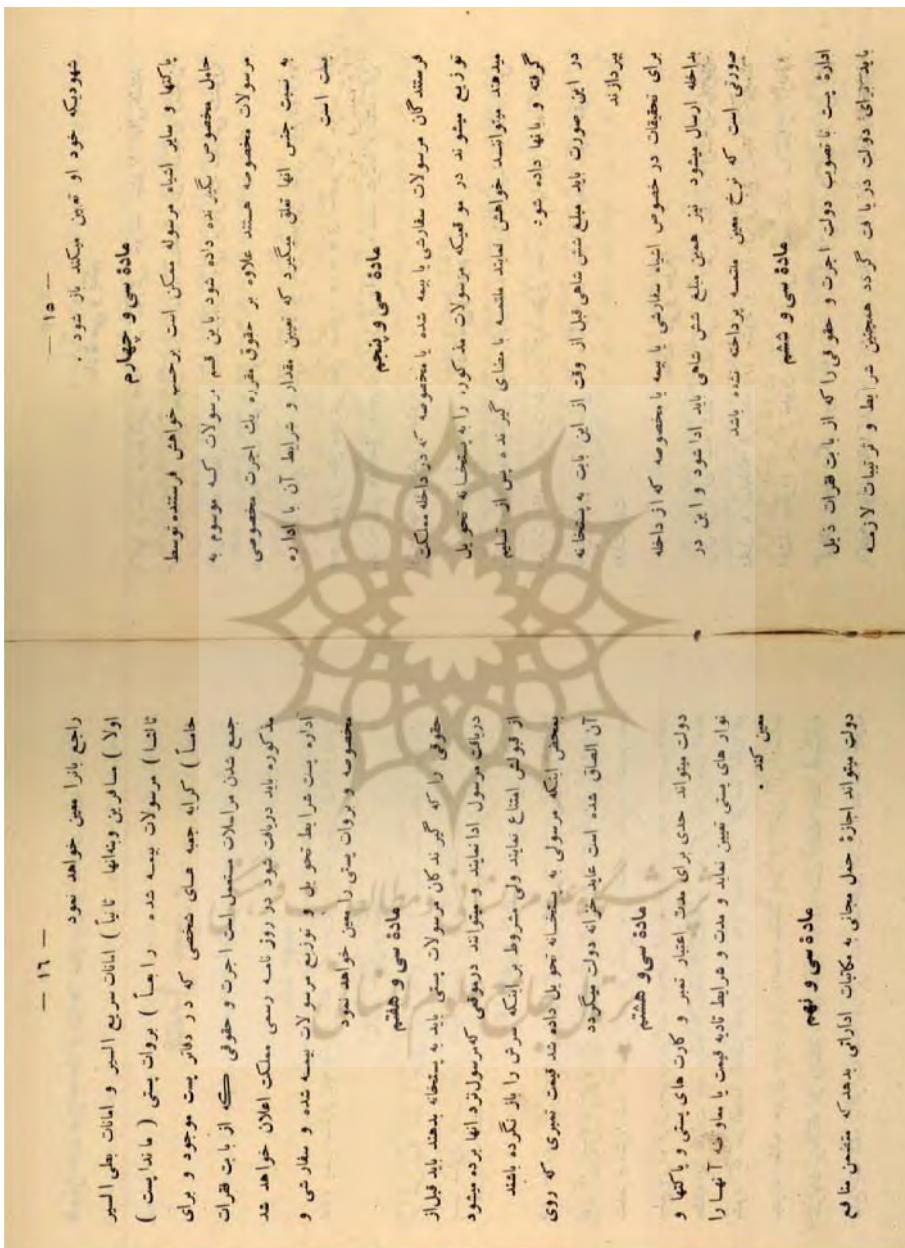 — ۱۵ —
شهودیکه خود او تعین میکند باز شود .
مادهٔ سی و چهارم
پاکتها و سایر اشیاء مرسوله ممکن است برحسب خواهش فرستنده توسط
حامل مخصوص بگیرنده داده شود باین قسم مرسولات که موسوم به
مرسولات مخصوصه هستند علاوه بر حقوق مقرره یك اجرت مخصوصی
به نسبت جنس انها تعلق میگیرد که تعیین مقدار و شرایط آن با اداره
پست است
مادهٔ سی و پنجم
فرستندگان مرسولات سفارشی یا بیمه شده یا مخصوصه که در داخله مملکت
توزیع میشوند در موقعیکه مرسولات مذکوره را به پستخانه تحویل
میدهند میتوانند خواهش نمایند ملتمسه بامضای گیرنده پس از تسلیم
گرفته و بانها داده شود
در این صورت باید مبلغ شش شاهی قبل از وقت از این بابت به پستخانه
بپردازند
برای تحقیقات در خصوص اشیاء سفارشی یا بیمه یا مخصوصه که از داخله
بداخله ارسال میشود نیز همین مبلغ شش شاهی باید ادا شود و این در
صورتی است که نرخ معین ملتمسه پرداخته نشده باشد
مادهٔ سی و ششم
ادارهٔ پست با تصویب دولت اجرت و حقوقی را که از بابت فقرات ذیل
باید برای دولت دریافت گردد همچنین شرایط و ترتیبات لازمه
— ۱۶ —
راجع بانرا معین خواهد نمود
اولا ) مسافرین وبنه‌انها ثانیاً ) امانات سریع السیر و امانات بطی السیر
ثالثاً ) مرسولات بیمه شده رابعاً ) بروات پستی ( ماندا پست )
خامساً ) کرایه جعبه های شخصی که در دفاتر پست موجود و برای
جمع شدن مراسلات مستعمل است اجرت و حقوقی که از بابت فقرات
مذکوره باید دریافت شود در روزنامه رسمی مملکت اعلان خواهد شد
اداره پست شرایط تحویل و توزیع مرسولات بیمه شده و سفارشی و
مخصوصه و بروات پستی را معین خواهد نمود
مادهٔ سی و هفتم
حقوقی را که گیرندکان مرسولات پستی باید به پستخانه بدهند باید قبل‌از
دریافت مرسول ادا نمایند و میتوانند درموقعی که‌مرسول نزد انها برده میشود
از قبولش امتناع نمایند ولی مشروط بر اینکه سرش را باز نگرده باشند
بمحض اینکه مرسولی به پستخانه تحویل داده شد قیمت تمبری که روی
آن الصاق شده است عاید خزانه دولت میگردد
مادهٔ سی و هشتم
دولت میتواند حدی برای مدت اعتبار تمبر و کارت های پستی و پاکتها و
نوار های پستی تعیین نماید و مدت و شرایط تادیه قیمت یا معاوضه آنها را
معین کند .
مادهٔ سی و نهم
دولت میتواند اجازهٔ حمل مجانی به مکاتبات اداراتی بدهد که متضمن منافع